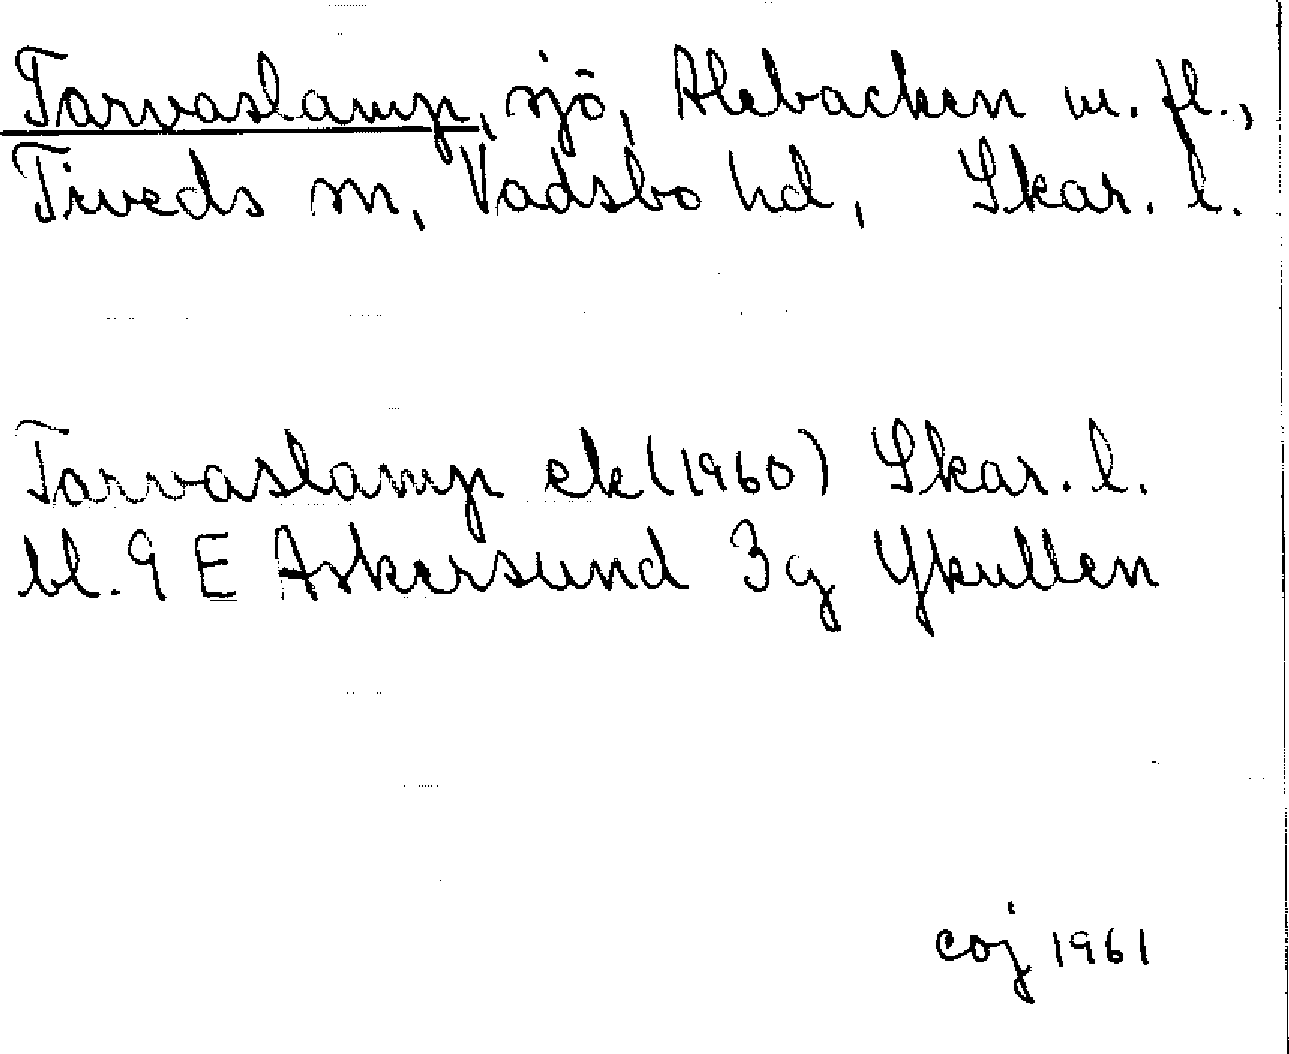 Tarvaslamp, sjö, Alebacken m. fl.,
Tiveds sn, Vadsbo hd, Skar. l.
Tarvaslamp ek (1960) Skar. l.
bl. 9 E Askersund 3g Ykullen
coj 1961